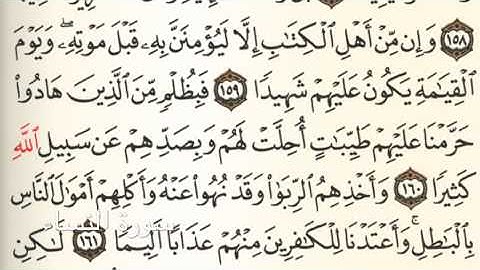 ١٥٨ وَإِن مِّنْ أَهْلِ ٱلْكِتَٰبِ إِلَّا لَيُؤْمِنَنَّ بِهِۦ قَبْلَ مَوْتِهِۦ ۖ وَيَوْمَ
ٱلْقِيَٰمَةِ يَكُونُ عَلَيْهِمْ شَهِيدًا ١٥٩ فَبِظُلْمٍ مِّنَ ٱلَّذِينَ هَادُوا۟
حَرَّمْنَا عَلَيْهِمْ طَيِّبَٰتٍ أُحِلَّتْ لَهُمْ وَبِصَدِّهِمْ عَن سَبِيلِ ٱللَّهِ
كَثِيرًا ١٦٠ وَأَخْذِهِمُ ٱلرِّبَوٰا۟ وَقَدْ نُهُوا۟ عَنْهُ وَأَكْلِهِمْ أَمْوَٰلَ ٱلنَّاسِ
بِٱلْبَٰطِلِ ۚ وَأَعْتَدْنَا لِلْكَٰفِرِينَ مِنْهُمْ عَذَابًا أَلِيمًا ١٦١ لَّٰكِنِ
سورة النساء